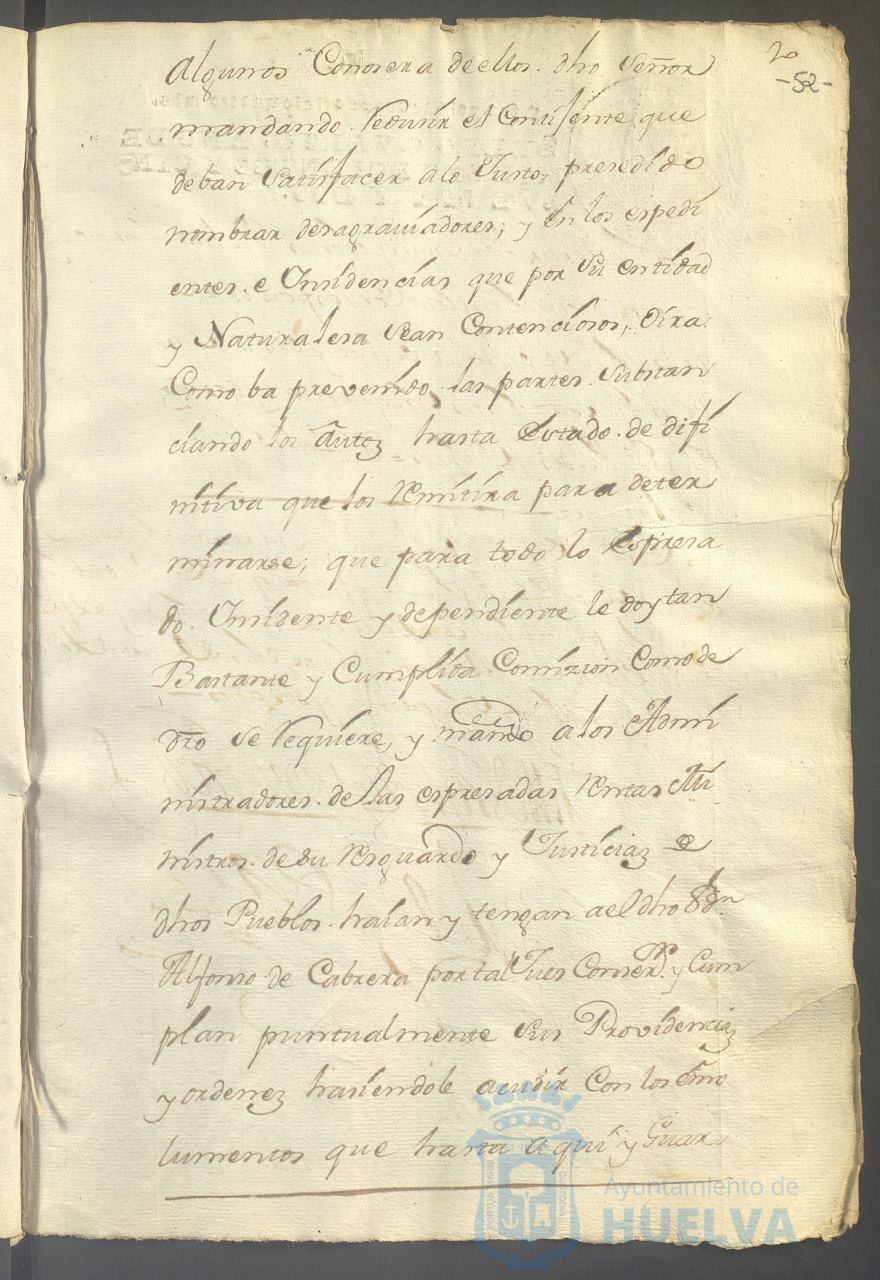 2
-52-
algunos Conosera de ellos. dho Señor
mandando Redusir el Contijente que
deban Satisfacer alo Justo, presedido
nombrar desagraviadores; y en los espedi
entes. e Insidencias que por su entidad
y Naturalesa sean Contenciosos, Oira.
Como ba prevenido las partes. Substan
ciando los Autoz hasta Estado. de difi
nitiva que los Remitira para deter
minarse; que para todo lo Espresa
do. Insidente y dependiente le doy tan
Bastante y Cumplida Comizion Como de
dro se Requiere, y mando a los Admi
nistradores. de las espresadas Rentas Mi
nistros. de su Resguardo y Justiciaz de
dhos Pueblos. haian y tengan a el dho Sr Dn
Alfonso de Cabrera por tal Jues Conser.r y Cum
plan puntualmente sus Providenciaz
y ordenez hasiendole acudir Con los emo
lumentos que hasta aqui y Guar
Ayuntamiento de
HUELVA